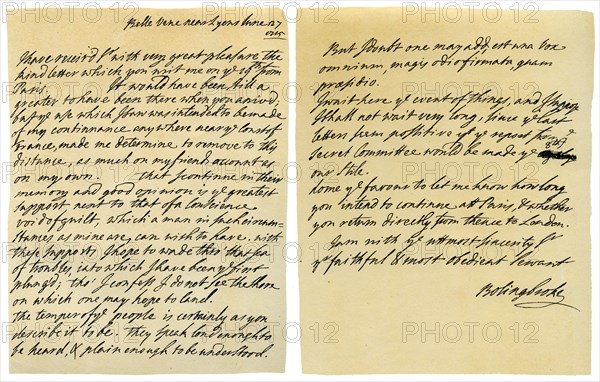 Belle Vene near Lyons June 27
1715
I have receiv'd Sr with very great pleasure the
kind letter which you writ me on ye 19th from
Paris. It would have been still a
greater to have been there when you arriv'd;
but ye use which I saw was intended to be made
of my continuance any where near ye Court of
France, made me determine to remove to this
distance, as much on my friends account as
on my own. that I continue in their
memory and good opinion is ye greatest
support next to that of a Conscience
void of guilt, which a man in such circum-
stances as mine are, can wish to have. with
these supports I hope to wade thro' that sea
of troubles into which I have been ye first
plung'd; tho' I confess I do not see the shore
on which one may hope to land.
The temper of ye people is certainly as you
describe it to be. they speak loud enough to
be heard, & plain enough to be understood.
But I doubt one may add, est una vox
omnium, magis odio firmata, quam
præsidio.
I wait here ye event of things, and I suppose
I shall not wait very long, since ye last
letters seem positive yt ye report from ye
Secret Committee would be made ye 8th
our Stile.
home ye favour to let me know how long
you intend to continue att Paris, & whether
you return directly from thence to London.
I am with ye uttmost sincerity Sr
yr faithful & most obedient Servant
Bolingbroke
PHOTO12 PHOTO12 PHOTO12